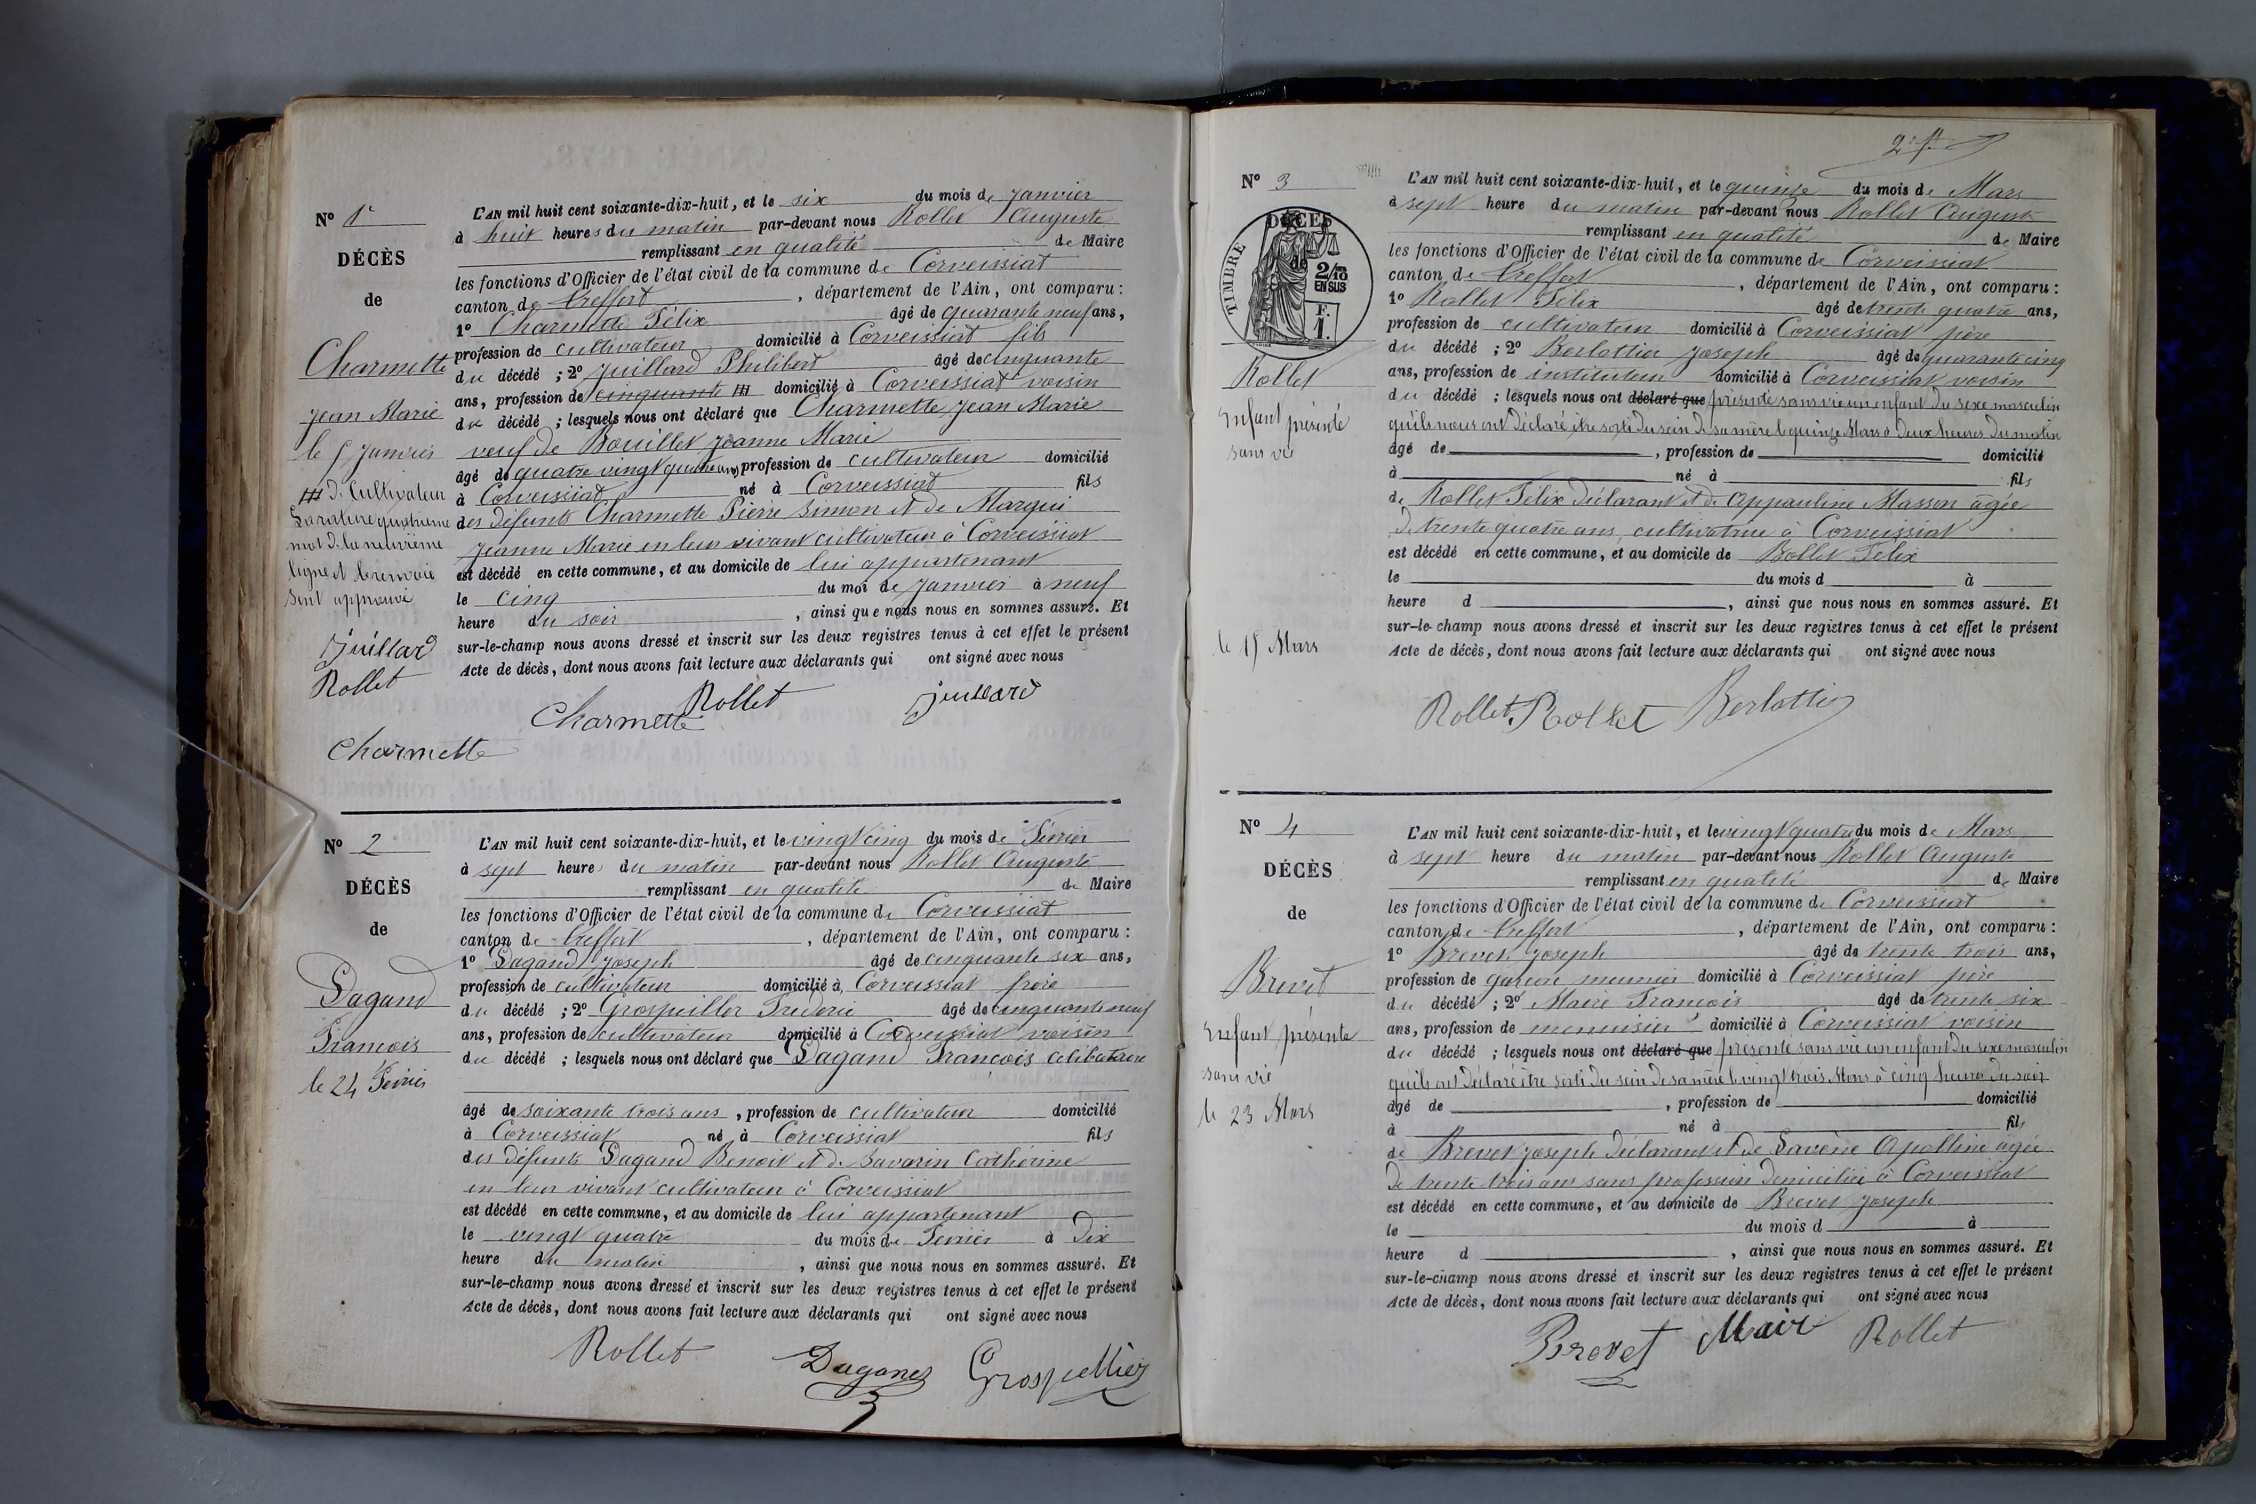 N° 1er
DÉCÈS
de
Charmette
Jean Marie
le 5 Janvier
HH de Cultivateur
La rature quatrieme
mot de la neuvième
ligne et le renvoie
sont approuvé
Juillard
Rollet
Charmette
L'AN mil huit cent soixante-dix-huit, et le six du mois de Janvier
à huit heures du matin par-devant nous Rollet Auguste
remplissant en qualité de Maire
les fonctions d'Officier de l'état civil de la commune de Corveissiat
canton de Treffort, département de l'Ain, ont comparu :
1° Charmette Félix âgé de quarante neuf ans,
profession de cultivateur domicilié à Corveissiat fils
du décédé ; 2° Juillard Philibert âgé de cinquante
ans, profession de cinquante HH domicilié à Corveissiat voisin
du décédé ; lesquels nous ont déclaré que Charmette Jean Marie
veuf de Bouillet Jeanne Marie
âgé de quatre vingt quatre ans, profession de cultivateur domicilié
à Corveissiat né à Corveissiat fils
des défunts Charmette Pierre Simon et de Marqui
Jeanne Marie en leur vivant cultivateur à Corveissiat
est décédé en cette commune, et au domicile de lui appartenant
le cinq du moi de Janvier à neuf
heure du soir, ainsi que nous nous en sommes assuré. Et
sur-le-champ nous avons dressé et inscrit sur les deux registres tenus à cet effet le présent
Acte de décès, dont nous avons fait lecture aux déclarants qui ont signé avec nous
Charmette Rollet juillard
N° 2
DÉCÈS
de
Dagand
Francois
le 24 Fevrier
L'AN mil huit cent soixante-dix-huit, et le vingt cinq du mois de Fevrier
à sept heures du matin par-devant nous Rollet Auguste
remplissant en qualité de Maire
les fonctions d'Officier de l'état civil de la commune de Corveissiat
canton de Treffort, département de l'Ain, ont comparu :
1° Dagand Joseph âgé de cinquante six ans,
profession de cultivateur domicilié à Corveissiat frère
du décédé ; 2° Grospellier Frederic âgé de cinquante neuf
ans, profession de cultivateur domicilié à Corveissiat voisin
du décédé ; lesquels nous ont déclaré que Dagand Francois celibataire
âgé de soixante trois ans, profession de cultivateur domicilié
à Corveissiat né à Corveissiat fils
des défunts Dagand Benoit et de Savarin Catherine
en leur vivant cultivateur à Corveissiat
est décédé en cette commune, et au domicile de lui appartenant
le vingt quatre du mois de Fevrier à dix
heure du matin, ainsi que nous nous en sommes assuré. Et
sur-le-champ nous avons dressé et inscrit sur les deux registres tenus à cet effet le présent
Acte de décès, dont nous avons fait lecture aux déclarants qui ont signé avec nous
Rollet Dagand Grospellier
2e f.
N° 3
DÉCÈS
de
TIMBRE
2/10
EN SUS
F.
1.
Rollet
Enfant présenté
sans vie
le 15 Mars
L'AN mil huit cent soixante-dix-huit, et le quinze du mois de Mars
à sept heure du matin par-devant nous Rollet Auguste
remplissant en qualité de Maire
les fonctions d'Officier de l'état civil de la commune de Corveissiat
canton de Treffort, département de l'Ain, ont comparu :
1° Rollet Félix âgé de trente quatre ans,
profession de cultivateur domicilié à Corveissiat père
du décédé ; 2° Berlottier Joseph âgé de quarante cinq
ans, profession de instituteur domicilié à Corveissiat voisin
du décédé ; lesquels nous ont déclaré que présenté sans vie un enfant du sexe masculin
qu'ils nous ont déclaré être sorti du sein de sa mère le quinze Mars à deux heures du matin
âgé de, profession de domicilié
à né à fils
de Rollet Félix déclarant et de Appauline Masson agée
de trente quatre ans, cultivatrice à Corveissiat
est décédé en cette commune, et au domicile de Rollet Félix
le du mois d à
heure d, ainsi que nous nous en sommes assuré. Et
sur-le-champ nous avons dressé et inscrit sur les deux registres tenus à cet effet le présent
Acte de décès, dont nous avons fait lecture aux déclarants qui ont signé avec nous
Rollet Rollet Berlottier
N° 4
DÉCÈS
de
Brevet
Enfant présenté
sans vie
le 23 Mars
L'AN mil huit cent soixante-dix-huit, et le vingt quatre du mois de Mars
à sept heure du matin par-devant nous Rollet Auguste
remplissant en qualité de Maire
les fonctions d'Officier de l'état civil de la commune de Corveissiat
canton de Treffort, département de l'Ain, ont comparu :
1° Brevet Joseph âgé de trente trois ans,
profession de garcon meunier domicilié à Corveissiat père
du décédé ; 2° Maire Francois âgé de trente six
ans, profession de menuisier domicilié à Corveissiat voisin
du décédé ; lesquels nous ont déclaré que présenté sans vie un enfant du sexe masculin
qu'ils ont déclaré être sorti du sein de sa mère le vingt trois Mars à cinq heures du soir
âgé de, profession de domicilié
à né à fils
de Brevet Joseph déclarant et de Savérie Apolline agée
de trente trois ans sans profession domiciliée à Corveissiat
est décédé en cette commune, et au domicile de Brevet Joseph
le du mois d à
heure d, ainsi que nous nous en sommes assuré. Et
sur-le-champ nous avons dressé et inscrit sur les deux registres tenus à cet effet le présent
Acte de décès, dont nous avons fait lecture aux déclarants qui ont signé avec nous
Brevet Mair Rollet